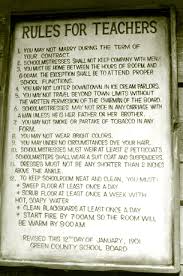 RULES FOR TEACHERS
1. YOU MAY NOT MARRY DURING THE TERM OF
YOUR CONTRACT.
2. SCHOOLMISTRESSES SHALL NOT KEEP COMPANY WITH MEN.
3. YOU MUST BE HOME BETWEEN THE HOURS OF 8:00PM AND
6:00AM. THE EXCEPTION SHALL BE TO ATTEND PROPER
SCHOOL FUNCTIONS.
4. YOU MAY NOT LOITER DOWNTOWN IN ICE CREAM PARLORS.
5. YOU MAY NOT TRAVEL BEYOND TOWN LIMITS WITHOUT
THE WRITTEN PERMISSION OF THE CHAIRMAN OF THE BOARD.
6. SCHOOLMISTRESSES MAY NOT RIDE IN A CARRIAGE WITH
A MAN UNLESS HE IS HER FATHER OR HER BROTHER.
7. YOU MAY NOT SMOKE OR PARTAKE OF TOBACCO IN ANY
FORM.
8. YOU MAY NOT WEAR BRIGHT COLORS.
9. YOU MAY UNDER NO CIRCUMSTANCES DYE YOUR HAIR.
10. SCHOOLMISTRESSES MUST WEAR AT LEAST 2 PETTICOATS.
SCHOOLMASTERS SHALL WEAR A SUIT COAT AND SUSPENDERS.
11. DRESSES MUST NOT BE ANY SHORTER THAN 2 INCHES
ABOVE THE ANKLE.
12. TO KEEP SCHOOLROOM NEAT AND CLEAN, YOU MUST:
* SWEEP FLOOR AT LEAST ONCE A DAY
* SCRUB FLOOR AT LEAST ONCE A WEEK WITH
HOT, SOAPY WATER
* CLEAN BLACKBOARDS AT LEAST ONCE A DAY
* START FIRE BY 7:00AM SO THE ROOM WILL
BE WARM BY 8:00AM
REVISED THIS 12TH DAY OF JANUARY, 1901
GREEN COUNTY SCHOOL BOARD